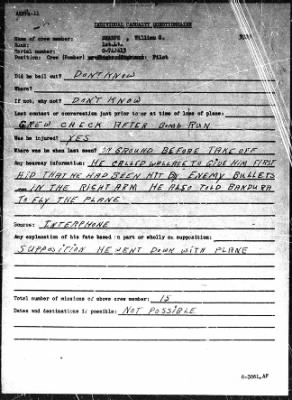 INDIVIDUAL CASUALTY QUESTIONNAIRE
Name of crew member: SHARPE, William G.
Rank: 1st.Lt.
Serial number:
Position: Crew (Bomber) Pilot
Did he bail out? DON'T KNOW
Where?
If not, why not? DON'T KNOW
Last contact or conversation just prior to or at time of loss of plane:
CREW CHECK AFTER BOMB RUN
Was he injured? YES
Where was he when last seen? ON GROUND BEFORE TAKE OFF
Any hearsay information: HE CALLED WALLACE TO GIVE HIM FIRST
AID THAT HE HAD BEEN HIT BY ENEMY BULLETS
IN THE RIGHT ARM HE ALSO TOLD BANDURA
TO FLY THE PLANE
Source: INTERPHONE
Any explanation of his fate based in part or wholly on supposition:
SUPPOSITION HE WENT DOWN WITH PLANE
Total number of missions of above crew member: 15
Dates and destinations if possible: NOT POSSIBLE
6-3861,AF